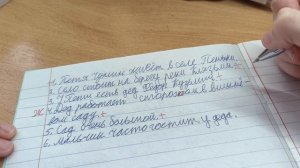 1. Петя Чуркин живёт в селе Пеньки.
2. Село стоит на берегу реки Клязьмы.+
3. У Пети есть дед Фёдор Кузьмич.+
Ж 4. Дед работает сторожом в вишнё-
вом саду.+
5. Сад очень большой.+
6. Мальчик часто гостит у деда.